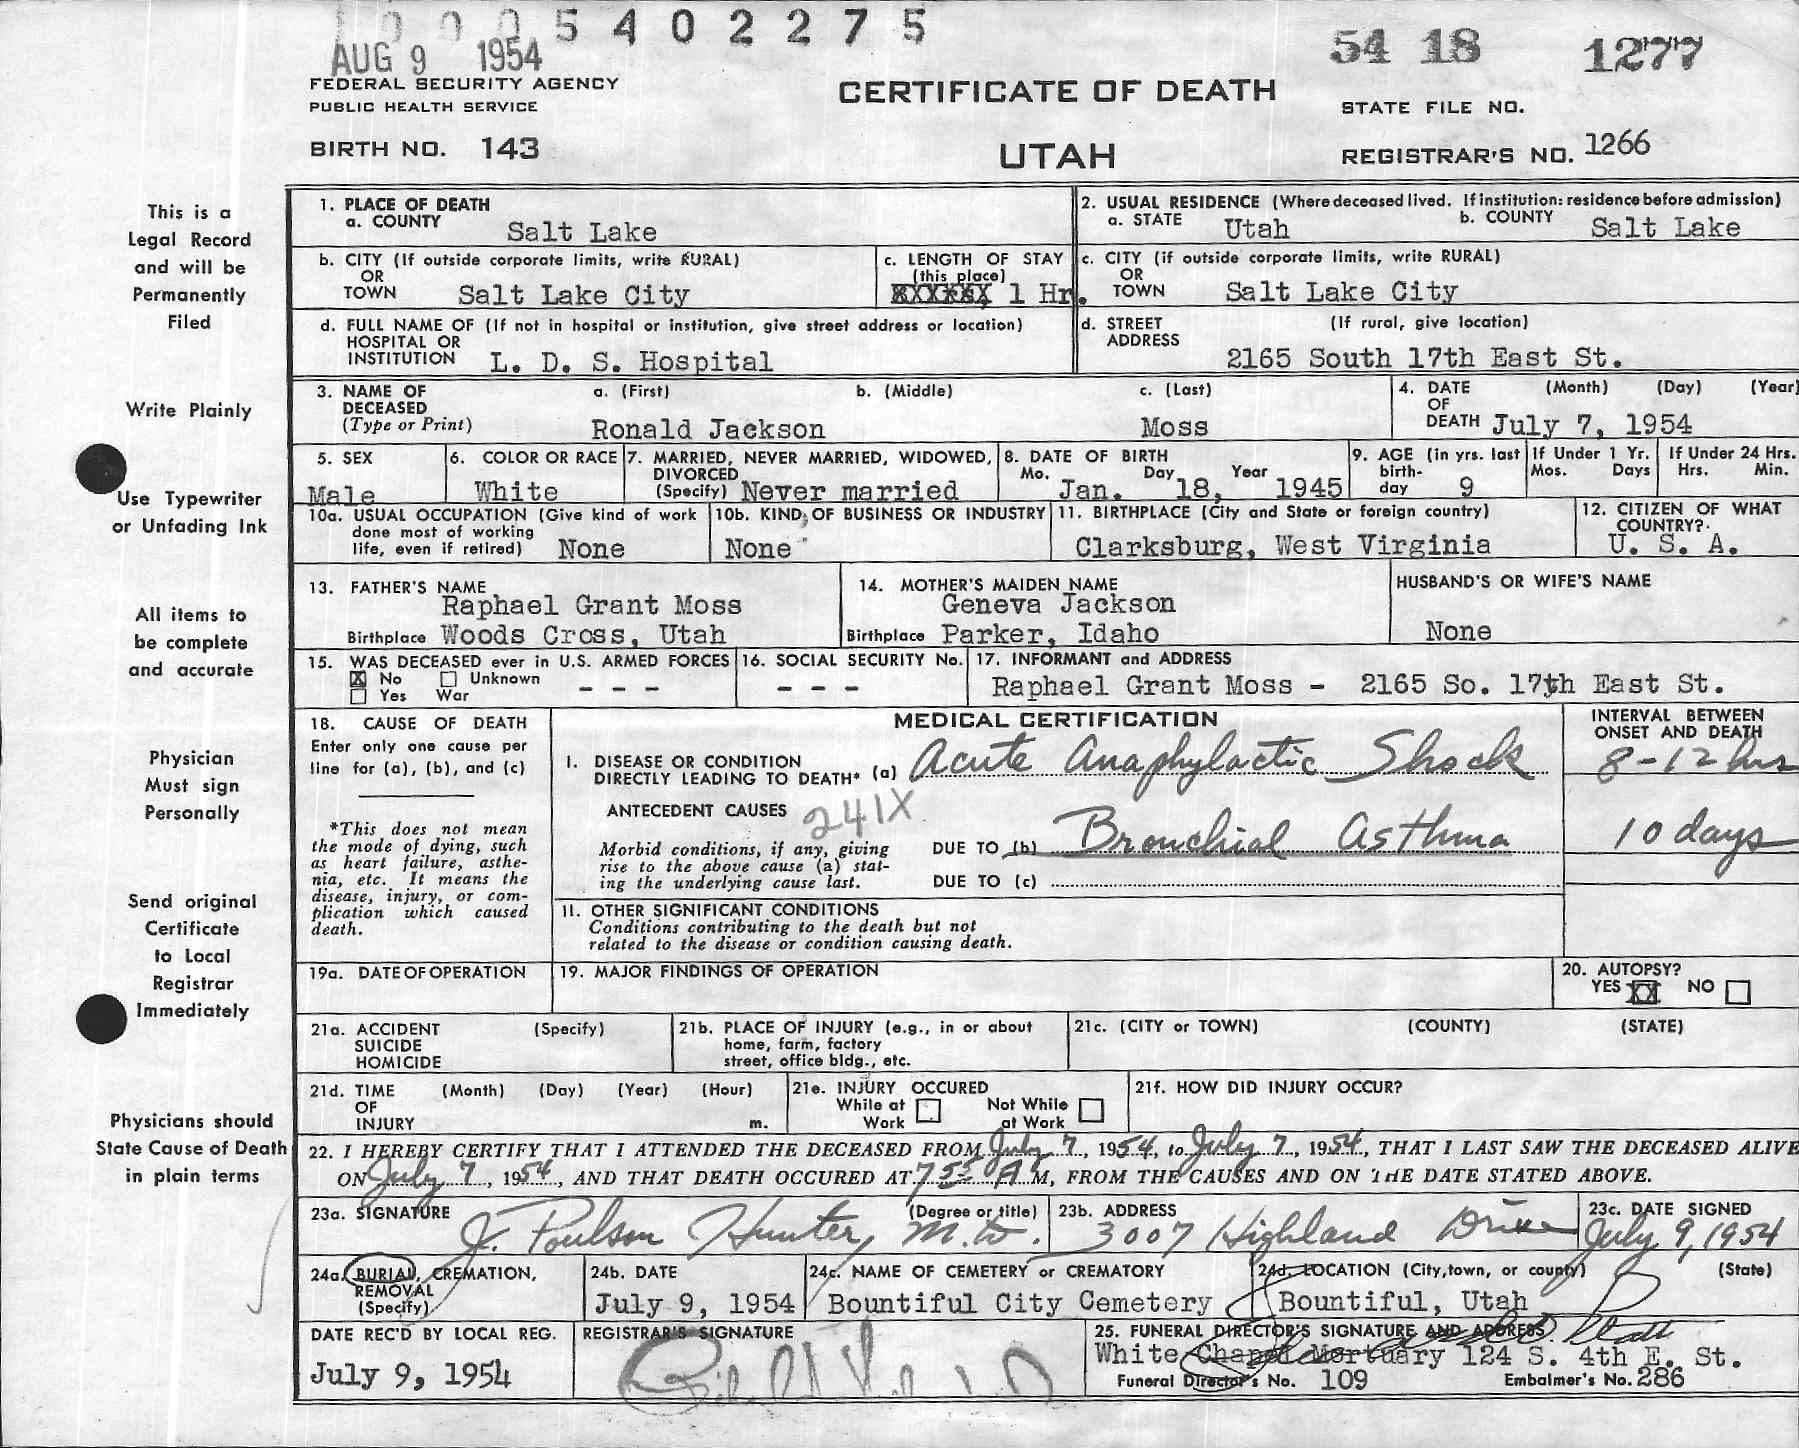 5402275
AUG 9 1954
54 18 1277
FEDERAL SECURITY AGENCY
PUBLIC HEALTH SERVICE
CERTIFICATE OF DEATH
STATE FILE NO.
BIRTH NO. 143
UTAH
REGISTRAR'S NO. 1266
This is a
Legal Record
and will be
Permanently
Filed
Write Plainly
Use Typewriter
or Unfading Ink
All items to
be complete
and accurate
Physician
Must sign
Personally
Send original
Certificate
to Local
Registrar
Immediately
Physicians should
State Cause of Death
in plain terms
1. PLACE OF DEATH
a. COUNTY Salt Lake
2. USUAL RESIDENCE (Where deceased lived. If institution: residence before admission)
a. STATE Utah b. COUNTY Salt Lake
b. CITY (If outside corporate limits, write RURAL)
OR
TOWN Salt Lake City
c. LENGTH OF STAY
(this place)
1 Hr.
c. CITY (if outside corporate limits, write RURAL)
OR
TOWN Salt Lake City
d. FULL NAME OF (If not in hospital or institution, give street address or location)
HOSPITAL OR
INSTITUTION L. D. S. Hospital
d. STREET (If rural, give location)
ADDRESS
2165 South 17th East St.
3. NAME OF a. (First) b. (Middle) c. (Last)
DECEASED
(Type or Print) Ronald Jackson Moss
4. DATE (Month) (Day) (Year)
OF
DEATH July 7, 1954
5. SEX
Male
6. COLOR OR RACE
White
7. MARRIED, NEVER MARRIED, WIDOWED,
DIVORCED
(Specify) Never married
8. DATE OF BIRTH
Mo. Day Year
Jan. 18, 1945
9. AGE (in yrs. last
birth-
day 9
If Under 1 Yr.
Mos. Days
If Under 24 Hrs.
Hrs. Min.
10a. USUAL OCCUPATION (Give kind of work
done most of working
life, even if retired) None
10b. KIND OF BUSINESS OR INDUSTRY
None
11. BIRTHPLACE (City and State or foreign country)
Clarksburg, West Virginia
12. CITIZEN OF WHAT
COUNTRY?
U. S. A.
13. FATHER'S NAME
Raphael Grant Moss
Birthplace Woods Cross, Utah
14. MOTHER'S MAIDEN NAME
Geneva Jackson
Birthplace Parker, Idaho
HUSBAND'S OR WIFE'S NAME
None
15. WAS DECEASED ever in U.S. ARMED FORCES
X No Unknown
Yes War - - -
16. SOCIAL SECURITY No.
- - -
17. INFORMANT and ADDRESS
Raphael Grant Moss - 2165 So. 17th East St.
18. CAUSE OF DEATH
Enter only one cause per
line for (a), (b), and (c)
*This does not mean
the mode of dying, such
as heart failure, asthe-
nia, etc. It means the
disease, injury, or com-
plication which caused
death.
MEDICAL CERTIFICATION
INTERVAL BETWEEN
ONSET AND DEATH
I. DISEASE OR CONDITION
DIRECTLY LEADING TO DEATH* (a) Acute Anaphylactic Shock 8-12 hrs
ANTECEDENT CAUSES 241X
Morbid conditions, if any, giving
rise to the above cause (a) stat-
ing the underlying cause last.
DUE TO (b) Bronchial Asthma 10 days
DUE TO (c)
II. OTHER SIGNIFICANT CONDITIONS
Conditions contributing to the death but not
related to the disease or condition causing death.
19a. DATE OF OPERATION
19. MAJOR FINDINGS OF OPERATION
20. AUTOPSY?
YES XX NO
21a. ACCIDENT (Specify)
SUICIDE
HOMICIDE
21b. PLACE OF INJURY (e.g., in or about
home, farm, factory
street, office bldg., etc.
21c. (CITY or TOWN) (COUNTY) (STATE)
21d. TIME (Month) (Day) (Year) (Hour)
OF
INJURY m.
21e. INJURY OCCURED
While at Not While
Work at Work
21f. HOW DID INJURY OCCUR?
22. I HEREBY CERTIFY THAT I ATTENDED THE DECEASED FROM July 7, 1954, to July 7, 1954, THAT I LAST SAW THE DECEASED ALIVE
ON July 7, 1954, AND THAT DEATH OCCURED AT 7 55 A M, FROM THE CAUSES AND ON THE DATE STATED ABOVE.
23a. SIGNATURE (Degree or title)
J. Poulson Hunter, M.D.
23b. ADDRESS
3007 Highland Drive
23c. DATE SIGNED
July 9, 1954
24a. BURIAL, CREMATION,
REMOVAL
(Specify)
24b. DATE
July 9, 1954
24c. NAME OF CEMETERY or CREMATORY
Bountiful City Cemetery
24d. LOCATION (City, town, or county) (State)
Bountiful, Utah
DATE REC'D BY LOCAL REG.
July 9, 1954
REGISTRAR'S SIGNATURE
25. FUNERAL DIRECTOR'S SIGNATURE AND ADDRESS
White Chapel Mortuary 124 S. 4th E. St.
Funeral Director's No. 109 Embalmer's No. 286